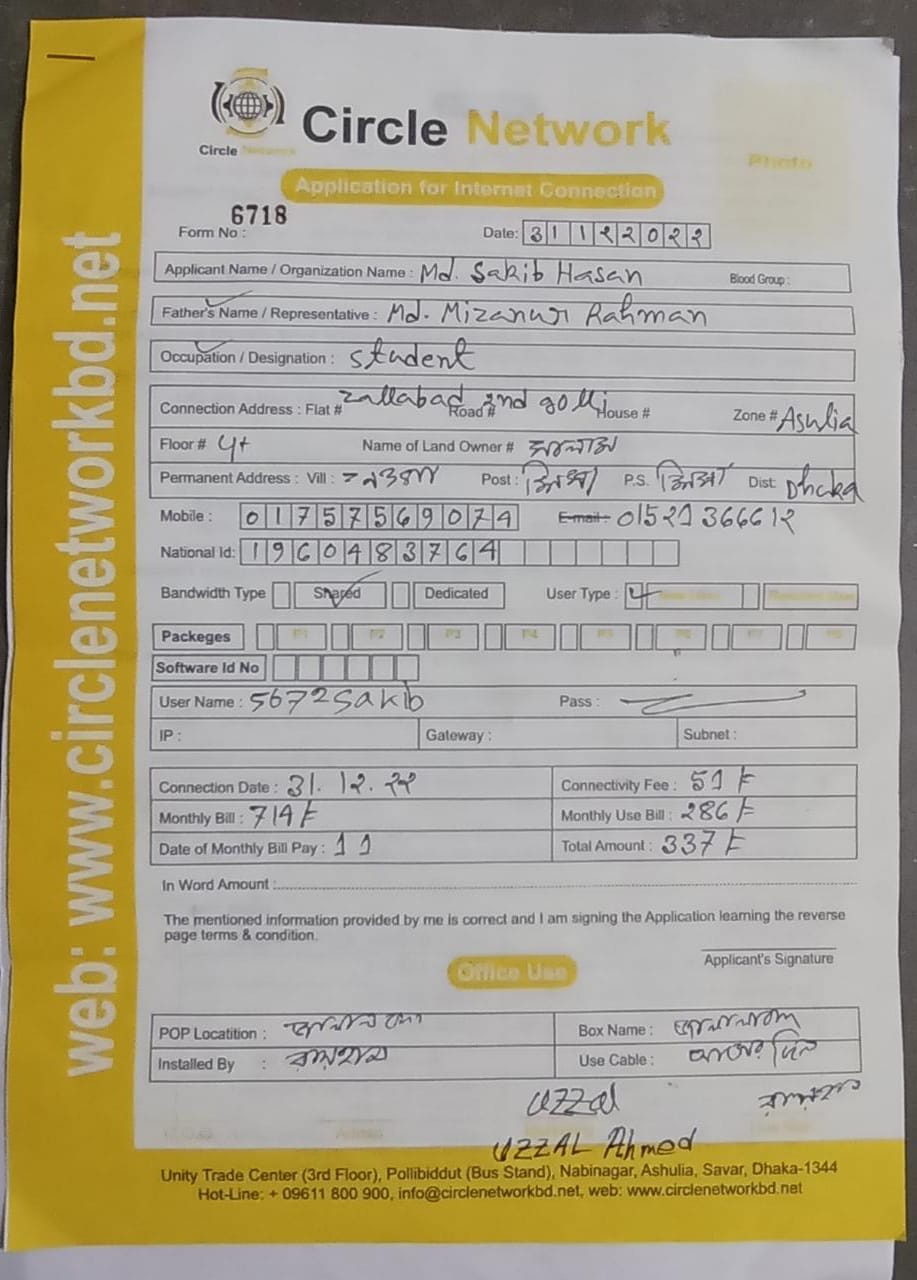 Circle Network
Circle Network
Photo
Application for Internet Connection
6718
Form No :
Date: 31122022
Applicant Name / Organization Name : Md. Sakib Hasan Blood Group :
Father's Name / Representative : Md. Mizanur Rahman
Occupation / Designation : student
Connection Address : Flat # Zallabad Road # 2nd golli House # Zone # Ashulia
Floor # 4t Name of Land Owner #
Permanent Address : Vill : Post : P.S. Dist: Dhaka
Mobile : 01757569074 E-mail : 01521366612
National Id: 1960483764
Bandwidth Type Shared Dedicated User Type :
Packeges P1 P2 P3 P4 P5 P6 P7 P8
Software Id No
User Name : 5672sakib Pass :
IP : Gateway : Subnet :
Connection Date : 31.12.22 Connectivity Fee : 51 t
Monthly Bill : 714 t Monthly Use Bill : 286 t
Date of Monthly Bill Pay : 11 Total Amount : 337 t
In Word Amount :
The mentioned information provided by me is correct and I am signing the Application learning the reverse
page terms & condition.
Applicant's Signature
Office Use
POP Locatition : Box Name :
Installed By : Use Cable :
Uzzal
UZZAL Ahmed
Unity Trade Center (3rd Floor), Pollibiddut (Bus Stand), Nabinagar, Ashulia, Savar, Dhaka-1344
Hot-Line: + 09611 800 900, info@circlenetworkbd.net, web: www.circlenetworkbd.net
web: www.circlenetworkbd.net